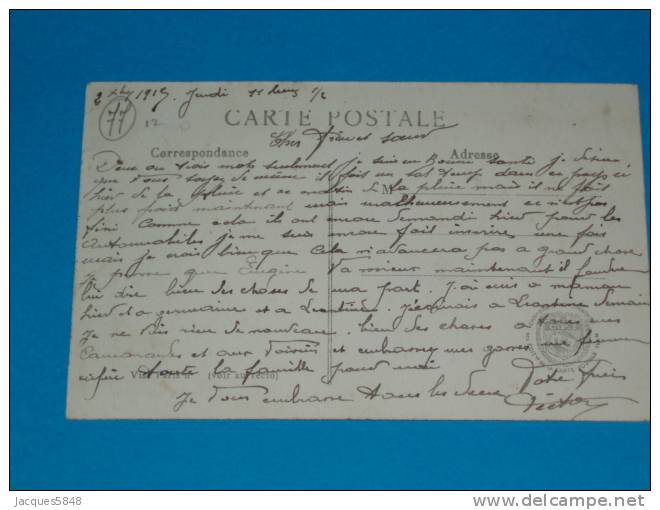 2 Xbre 1915. Jeudi 11 heures 1/2
77
12
CARTE POSTALE
Chers Frère et soeur
Correspondance Adresse
Deux ou trois mots seulement je suis en bonne santé je désire
que vous soyez de même il fait un sal temps dans ce pays ci
hier de la pluie et ce matin de la pluie mais il ne fait M
plus froid maintenant mais malheureusement ce n'est pas
fini comme cela ils ont encore demandé hier pour les
automobiles je me suis encore fait inscrire une fois
mais je vois bien que cela n'avancera pas a grand chose
je pense que Eugène va mieux maintenant il faudra
lui dire bien des choses de ma part. J'ai écris a maman
hier et a germaine et a Léontine. J'écrirais a demain
Je ne vois rien de nouveau. bien des choses a tous mes
camarades et aux voisins et embrassez mes gosses
toute la famille pour moi
(voir au recto)
Je vous embrasse tous les deux Votre Frère
Victor
Jacques5848
delcampe.net